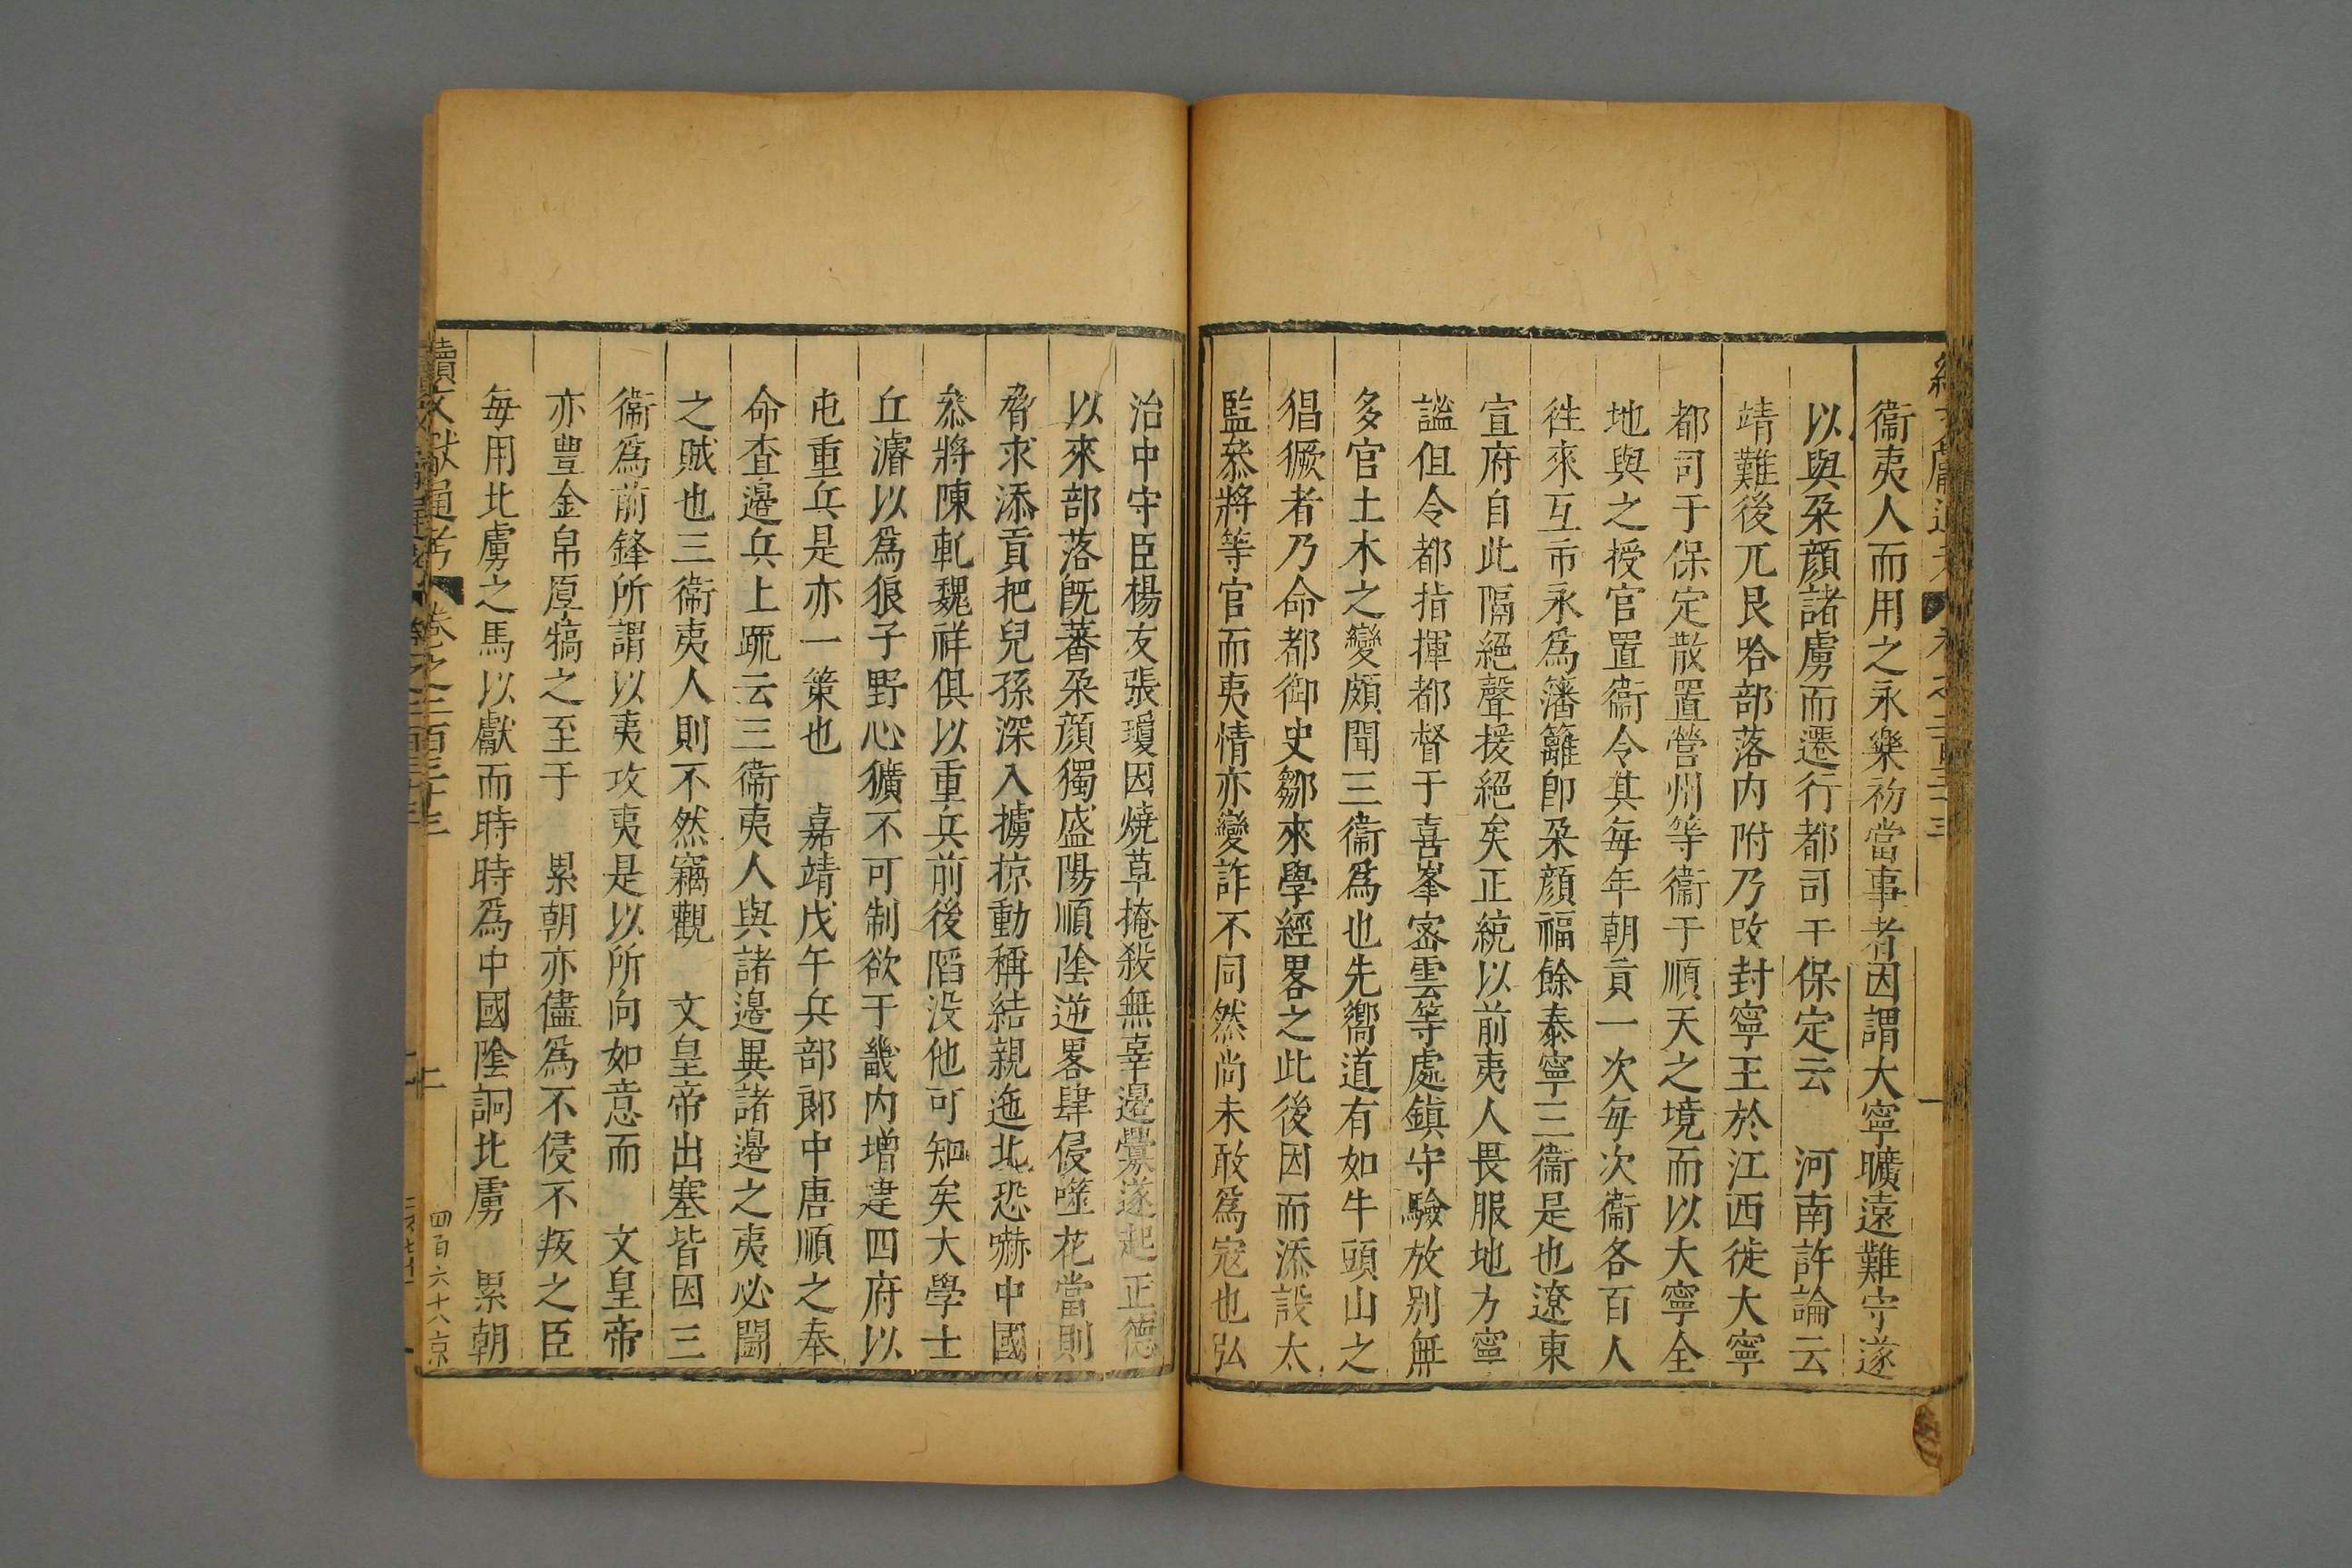 衞夷人而用之永樂初當事者因謂大寧曠遠難守遂
以與朶顔諸虜而遷行都司于保定云　河南許論云
靖難後兀良哈部落内附乃改封寧王於江西徙大寧
都司于保定散置營州等衞于順天之境而以大寧全
地與之授官置衞令其每年朝貢一次每次衞各百人
徃來互市永爲籓籬卽朶顔福餘泰寧三衞是也遼東
宣府自此隔絕聲援絕矣正統以前夷人畏服地方寧
謐但令都指揮都督于喜峯密雲等處鎮守驗放别無
多官土木之變頗聞三衞爲也先嚮道有如牛頭山之
猖獗者乃命都御史鄒來學經畧之此後因而添設太
監叅將等官而夷情亦變詐不同然尚未敢爲寇也弘
治中守臣楊友張瓊因燒草掩殺無辜邊釁遂起正德
以來部落旣蕃朶顔獨盛陽順陰逆畧肆侵噬花當則
脅求添貢把兒孫深入擄掠動稱結親迤北恐嚇中國
叅將陳乹魏祥俱以重兵前後陷没他可知矣大學士
丘濬以爲狼子野心獷不可制欲于畿内增建四府以
屯重兵是亦一策也　嘉靖戊午兵部郎中唐順之奉
命査邊兵上疏云三衞夷人與諸邊異諸邊之夷必闘
之賊也三衞夷人則不然竊觀　文皇帝出塞皆因三
衞爲前鋒所謂以夷攻夷是以所向如意而　文皇帝
亦豊金帛厚犒之至于　累朝亦儘爲不侵不叛之臣
每用北虜之馬以獻而時時爲中國陰詗北虜　累朝
續文獻通考　卷之二百三十三　二　四百六十八京